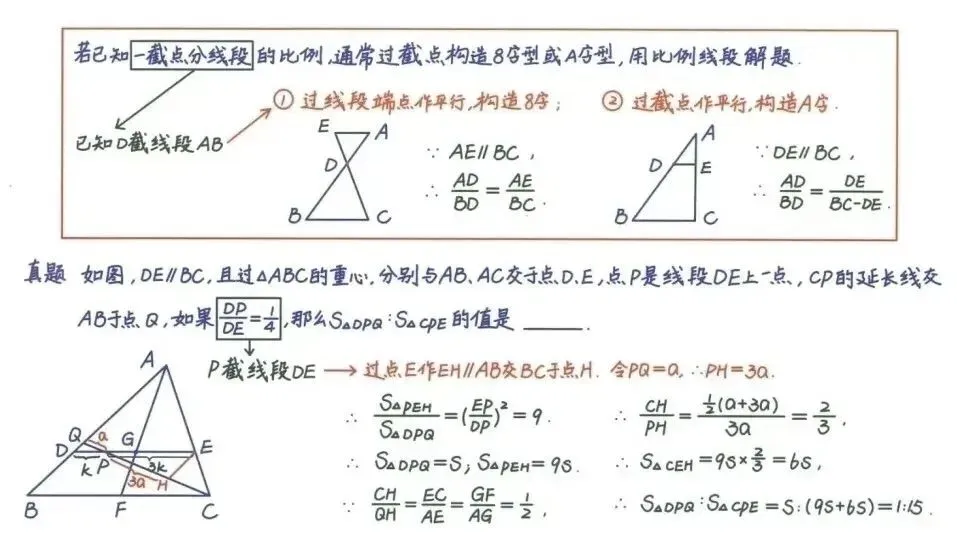 若已知一截点分线段的比例,通常过截点构造8字型或A字型,用比例线段解题.
① 过线段端点作平行,构造8字;
② 过截点作平行,构造A字.
已知D截线段AB
E A
D
B C
∵ AE∥BC,
∴ AD/BD = AE/BC.
A
D E
B C
∵ DE∥BC,
∴ AD/BD = DE/BC-DE.
真题 如图,DE∥BC,且过△ABC的重心,分别与AB、AC交于点D、E,点P是线段DE上一点,CP的延长线交
AB于点Q,如果 DP/DE = 1/4,那么S△DPQ:S△CPE的值是 ______.
P截线段DE → 过点E作EH∥AB交BC于点H. 令PQ=a, ∴PH=3a.
∴ S△PEH/S△DPQ = (EP/DP)² = 9.
∴ S△DPQ=S; S△PEH=9S.
∴ CH/QH = EC/AE = GF/AG = 1/2,
∴ CH/PH = ½(a+3a)/3a = 2/3,
∴ S△CEH = 9S×2/3 = 6S,
∴ S△DPQ:S△CPE = S:(9S+6S) = 1:15.
A
Q a G
D P E
k 3k
3a H
B F C